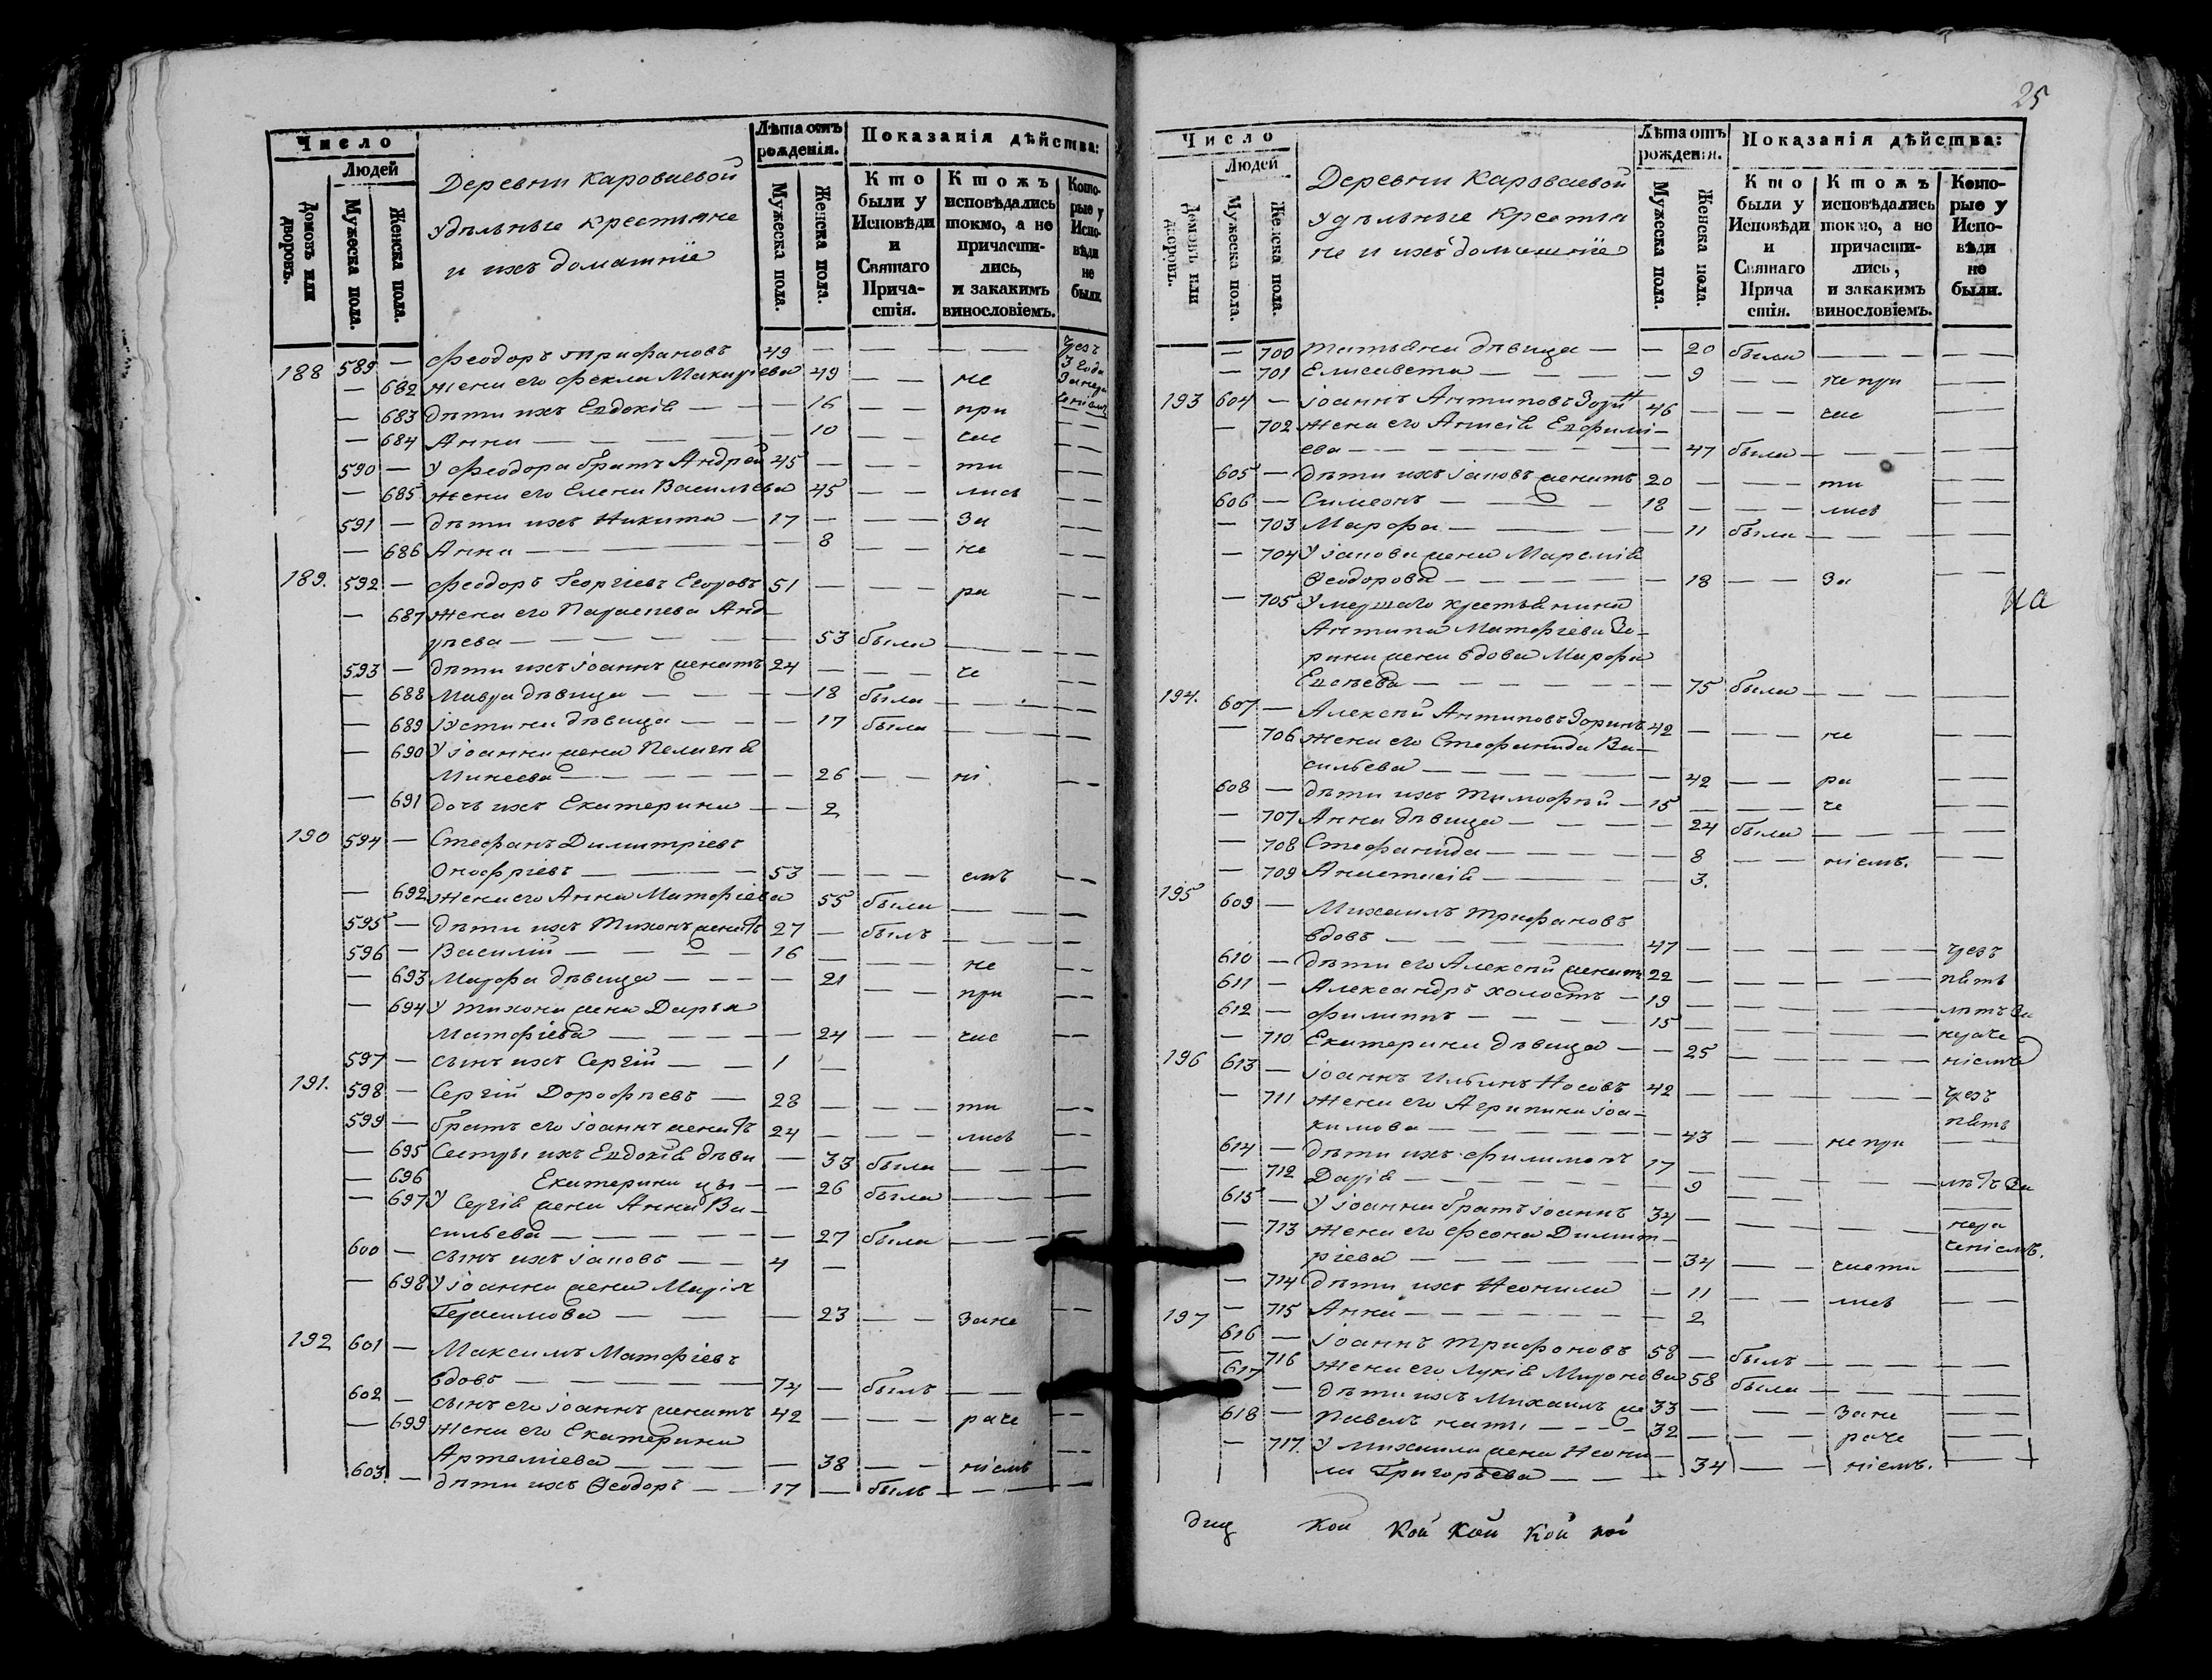 Число
Людей
Домовъ или дворовъ.
Мужеска пола.
Женска пола.
Деревни Караваевой
удѣльные крестьяне
и ихъ домашніе
Лѣта отъ рожденія.
Мужеска пола.
Женска пола.
Показанія дѣйства:
Кто были у Исповѣди и Святаго Причастія.
Ктожъ исповѣдались токмо, а не причастились, и закакимъ винословіемъ.
Которые у Исповѣди не были.
188 589 — Феодоръ Трифановъ 49 — — — — чрез 3 года
— 682 жена его Фекла 49 — — не
— 683 дѣти ихъ Евдокія — — — 16 — — при
— 684 Анна — — — 10 — — час
590 — У Феодора братъ Андрей 45 — — — ти
— 685 жена его Елена Васильева 45 — — лись
591 — дѣти ихъ Никита — 17 — — — За
— 686 Анна — — — 8 — — не
189. 592 — Феодоръ Георгіевъ Егоровъ 51 — — — ра
— 687 жена его Параскева Анд
рѣева — — — 53 была — — —
593 — дѣти ихъ Іоаннъ женатъ 24 — — — че
— 688 Мавра дѣвица — — — 18 была — — —
— 689 Іустина дѣвица — — — 17 была — — —
— 690 У Іоанна жена Пелагѣя
Минеева — — — 26 — — ні
— 691 дочь ихъ Екатерина — — 2
190 594 — Стефанъ Димитріевъ
Онофріевъ — — — 53 — — — емъ
— 692 жена его Анна Матфіева 55 была — — —
595 — дѣти ихъ Тихонъ женатъ 27 — былъ — — —
596 — Василій — — — 16 — — — не
— 693 Марфа дѣвица — — — 21 — — при
— 694 У Тихона жена Дарья
Матфіева — — — 24 — — час
597 — сынъ ихъ Сергій — — 1 —
191. 598 — Сергій Дорофѣевъ — 28 — — — ти
599 — братъ его Іоаннъ женатъ 24 — — — лись
— 695 Сестры ихъ Евдокія дѣви — 33 была — — —
— 696 Екатерина цы — — 26 была — — —
— 697 У Сергія жена Анна Ва-
сильева — — — 27 была — — —
600 — сынъ ихъ Іаковъ — — 4 —
— 698 У Іоанна жена Марія
Герасимова — — — 23 — — Зане
192 601 — Максимъ Матфіевъ
вдовъ — — — 74 — былъ — —
602 — сынъ его Іоаннъ женатъ 42 — — — раче
— 699 жена его Екатерина
Артеміева — — — 38 — — ніемъ
603. — дѣти ихъ Ѳеодоръ — — 17 — былъ — — —
25
Число
Людей
Домовъ или дворовъ.
Мужеска пола.
Женска пола.
Деревни Караваевой
удѣльные крестья
не и ихъ домашніе
Лѣта отъ рожденія.
Мужеска пола.
Женска пола.
Показанія дѣйства:
Кто были у Исповѣди и Святаго Прича стія.
Ктожъ исповѣдались токмо, а не причастились, и закакимъ винословіемъ.
Которые у Исповѣди не были.
— 700 Татьяна дѣвица — — 20 была — — —
— 701 Елисавета — — — 9 — — не при
193 604 — Іоаннъ Антиповъ 46 — — — час
— 702 жена его Евфимі-
ева — — — 47 была — — —
605 — дѣти ихъ Іаковъ женатъ 20 — — — ти
606 — Симеонъ — — — 18 — — — лись
— 703 Марфа — — — 11 была — — —
— 704 У Іакова жена
Ѳеодорова — — — 18 — — За
— 705 Умершаго крестьянина
Антипа Матфіева Зо-
рина жена вдова Марфа
— — — 75 была — — —
на
194. 607 — Алексѣй Антиповъ Зоринъ 42 — — — не
— 706 жена его Стефанида Ва-
сильева — — — 42 — — ра
608 — дѣти ихъ Тимофѣй — 15 — — — че
— 707 Анна дѣвица — — — 24 была — — —
— 708 Стефанида — — — 8 — — ніемъ.
— 709 Анастасія — — — 3.
195 609 — Михаилъ Трифановъ
вдовъ — — — 47 — — — — чрезъ
610 — дѣти его Алексѣй женатъ 22 — — — — пять
611 — Александръ холостъ — 19 — — — — лѣтъ За
612 — Филиппъ — — — 15 — — — — нераче
— 710 Екатерина дѣвица — — 25 — — — ніемъ
196 613 — Іоаннъ Ильинъ Носовъ 42 — — — — чрезъ
— 711 жена его Агрипина Іоа-
кимова — — — 43 — — не при пять
614 — дѣти ихъ Филимонъ 17 — — — — лѣтъ За
— 712 Дарія — — — 9 — —
615 — У Іоанна братъ Іоаннъ 34 — — — — нера
— 713 жена его Феона Димит-
ріева — — — 34 — — части ченіемъ.
— 714 дѣти ихъ Неонила — 11 — — лись
— 715 Анна — — — 2
197 616 — Іоаннъ Трифоновъ 58 — былъ — — —
— 716 жена его Лукія Миронова 58 была — — —
617 — дѣти ихъ Михаилъ же 33 — — — Зане
618 — Павелъ наты — — — 32 — — — раче
— 717. У Михаила жена Неони-
ла Григорьева — — — 34 — — ніемъ.
Кои Кои Кои Кои